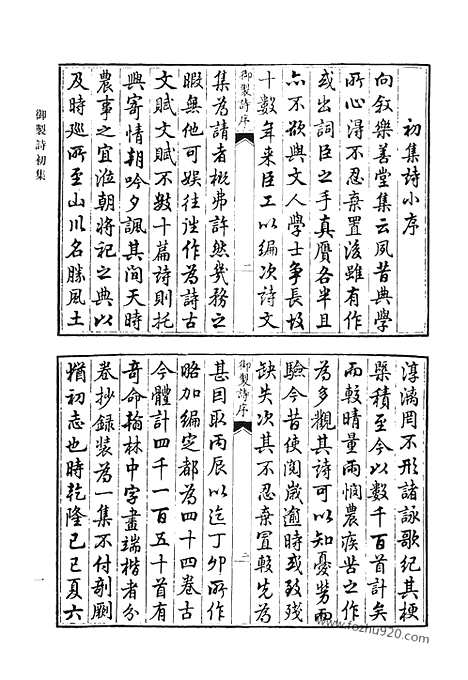 初集詩小序
向敘樂善堂集云夙昔典學
所心得不忍棄置後雖有作
或出詞臣之手真贗各半且
亦不欲與文人學士爭長故
十數年来臣工以編次詩文
御製詩序 二
集為請者概弗許然幾務之
暇無他可娱往往作為詩古
文賦文賦不數十篇詩則托
興寄情朝吟夕諷其间天時
農事之宜涖朝將祀之典以
及時廵所至山川名勝風土
淳漓罔不形諸詠歌紀其梗
槩積至今以数千百首計矣
而較晴量雨憫農疾苦之作
為多觀其詩可以知憂勞而
驗今昔使閲歲逾時或致殘
缺失次其不忍棄置較先為
御製詩序 三
甚因取丙辰以迄丁卯所作
略加編定都為四十四卷古
今體計四千一百五十首有
奇命翰林中字畫端楷者分
卷抄録装為一集不付剞劂
猶初志也時乾隆己巳夏六
御製詩初集
一
www.fozhu920.com